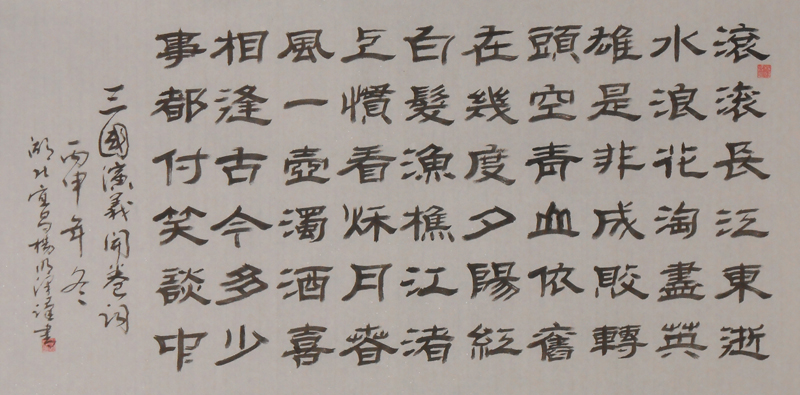 滚滚長江東逝
水浪花淘盡英
雄是非成敗轉
頭空青山依舊
在幾度夕陽紅
白髮漁樵江渚
上慣看秋月春
風一壺濁酒喜
相逢古今多少
事都付笑談中
三國演義開卷詞
丙申年冬
湖北宜昌楊 謹書